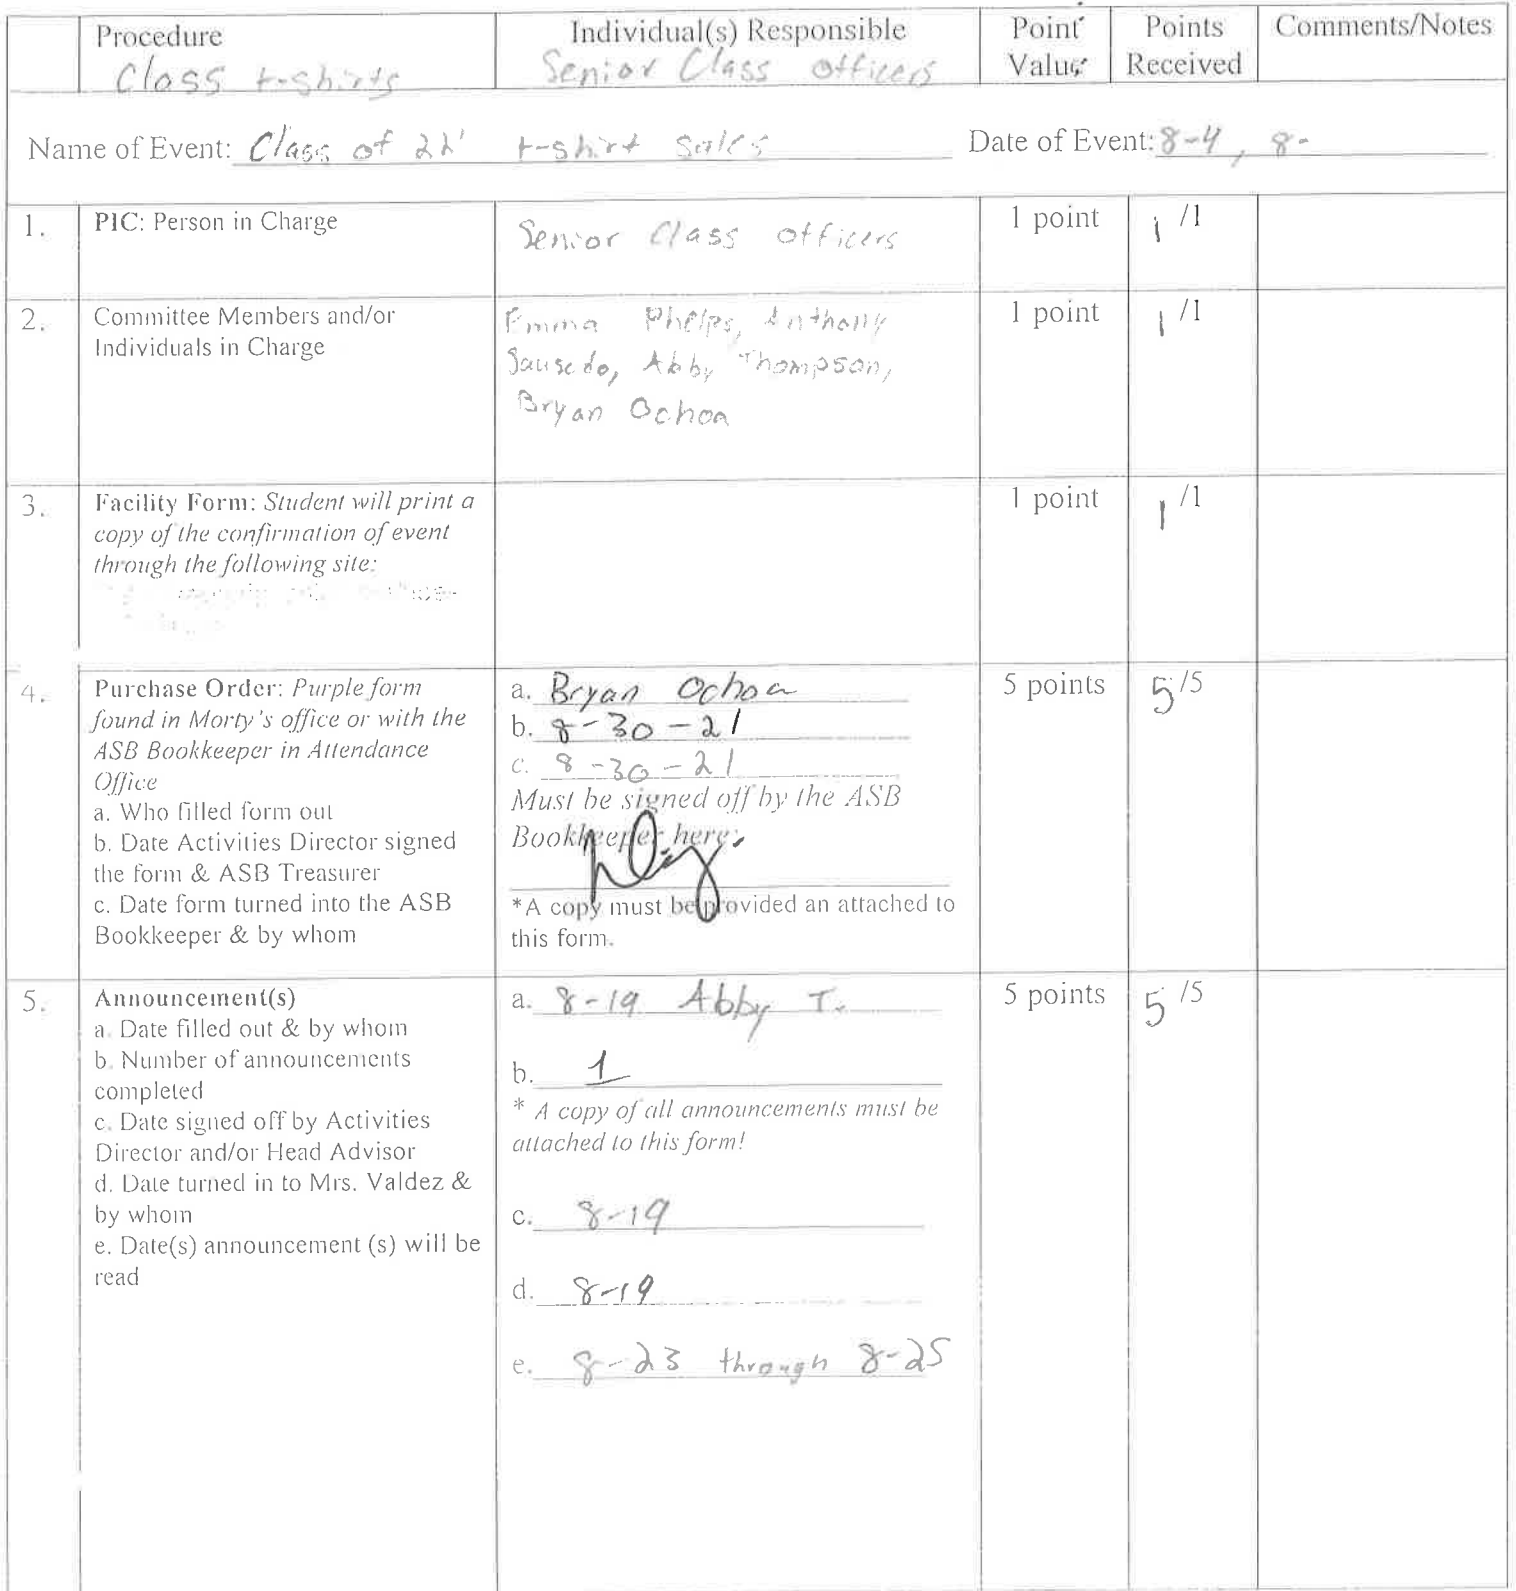 Procedure
Class t-shirts
Individual(s) Responsible
Senior Class officers
Point
Value
Points
Received
Comments/Notes
Name of Event: Class of 22' t-shirt sales
Date of Event: 8-4, 8-
1.
PIC: Person in Charge
Senior Class officers
1 point
1 /1
2.
Committee Members and/or
Individuals in Charge
Emma Phelps, Anthony
Sausedo, Abby Thompson,
Bryan Ochoa
1 point
1 /1
3.
Facility Form: Student will print a
copy of the confirmation of event
through the following site:
1 point
1 /1
4.
Purchase Order: Purple form
found in Morty's office or with the
ASB Bookkeeper in Attendance
Office
a. Who filled form out
b. Date Activities Director signed
the form & ASB Treasurer
c. Date form turned into the ASB
Bookkeeper & by whom
a. Bryan Ochoa
b. 8-30-21
c. 8-30-21
Must be signed off by the ASB
Bookkeeper here:
*A copy must be provided an attached to
this form.
5 points
5 /5
5.
Announcement(s)
a. Date filled out & by whom
b. Number of announcements
completed
c. Date signed off by Activities
Director and/or Head Advisor
d. Date turned in to Mrs. Valdez &
by whom
e. Date(s) announcement (s) will be
read
a. 8-19 Abby T.
b. 1
* A copy of all announcements must be
attached to this form!
c. 8-19
d. 8-19
e. 8-23 through 8-25
5 points
5 /5